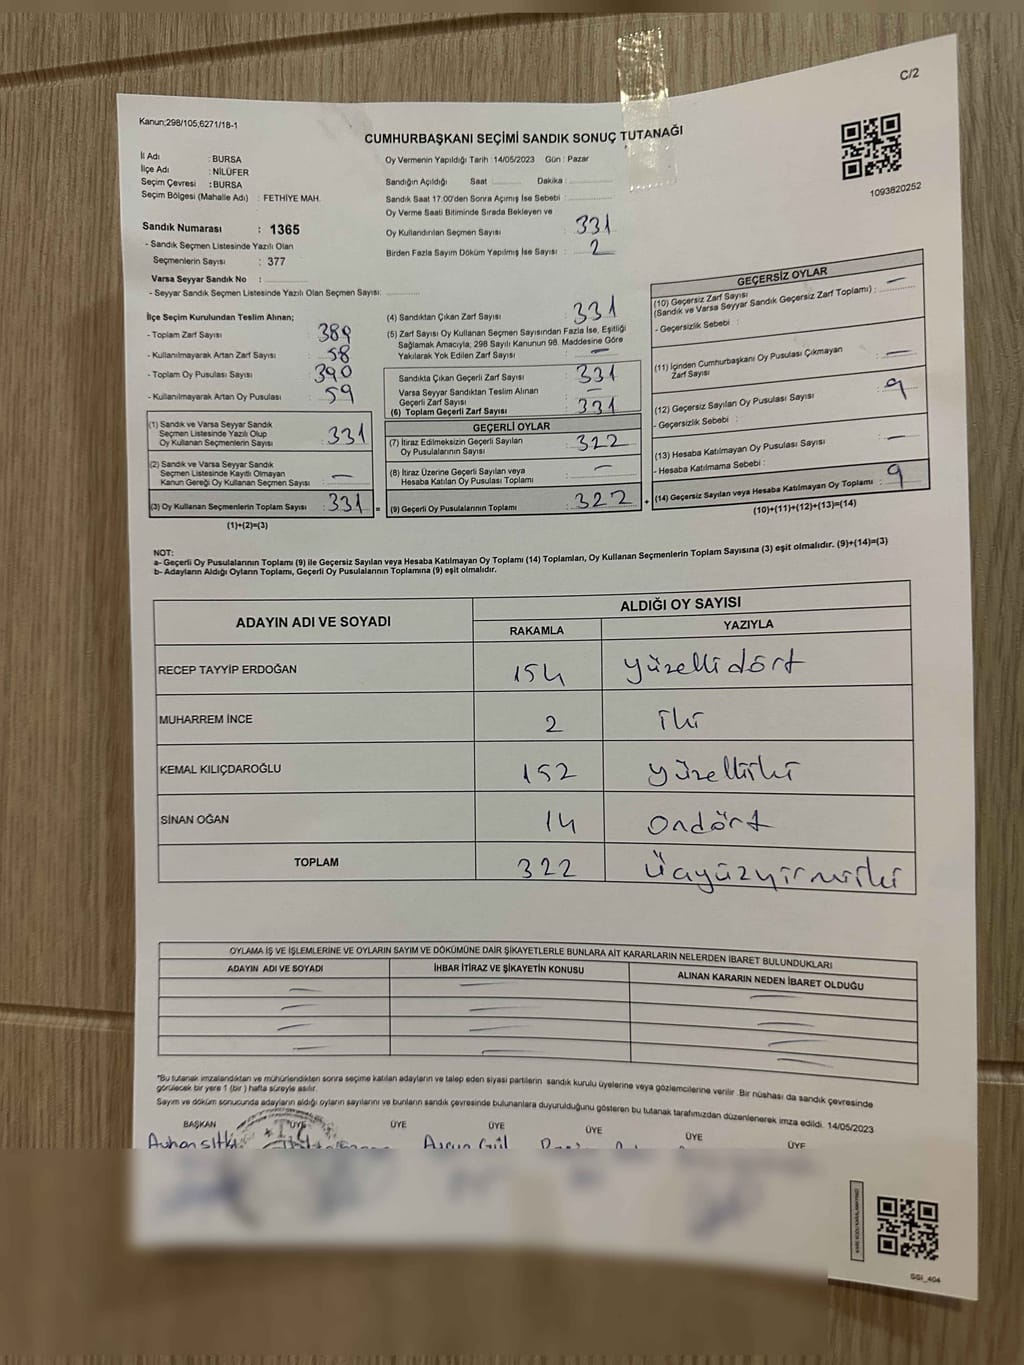 C/2
Kanun;298/105,6271/18-1
CUMHURBAŞKANI SEÇİMİ SANDIK SONUÇ TUTANAĞI
1093820252
İl Adı : BURSA
İlçe Adı : NİLÜFER
Seçim Çevresi : BURSA
Seçim Bölgesi (Mahalle Adı) : FETHİYE MAH.
Sandık Numarası : 1365
- Sandık Seçmen Listesinde Yazılı Olan
Seçmenlerin Sayısı : 377
Varsa Seyyar Sandık No :
- Seyyar Sandık Seçmen Listesinde Yazılı Olan Seçmen Sayısı:
Oy Vermenin Yapıldığı Tarih :14/05/2023 Gün : Pazar
Sandığın Açıldığı Saat Dakika :
Sandık Saat 17.00'den Sonra Açımış İse Sebebi :
Oy Verme Saati Bitiminde Sırada Bekleyen ve
Oy Kullandırılan Seçmen Sayısı : 331
Birden Fazla Sayım Döküm Yapılmış İse Sayısı : 2
İlçe Seçim Kurulundan Teslim Alınan;
- Toplam Zarf Sayısı : 389
- Kullanılmayarak Artan Zarf Sayısı : 58
- Toplam Oy Pusulası Sayısı : 390
- Kullanılmayarak Artan Oy Pusulası : 59
(1) Sandık ve Varsa Seyyar Sandık
Seçmen Listesinde Yazılı Olup
Oy Kullanan Seçmenlerin Sayısı : 331
(2) Sandık ve Varsa Seyyar Sandık
Seçmen Listesinde Kayıtlı Olmayan
Kanun Gereği Oy Kullanan Seçmen Sayısı : —
(3) Oy Kullanan Seçmenlerin Toplam Sayısı : 331 =
(1)+(2)=(3)
(4) Sandıktan Çıkan Zarf Sayısı : 331
(5) Zarf Sayısı Oy Kullanan Seçmen Sayısından Fazla İse, Eşitliği
Sağlamak Amacıyla; 298 Sayılı Kanunun 98. Maddesine Göre
Yakılarak Yok Edilen Zarf Sayısı : —
Sandıkta Çıkan Geçerli Zarf Sayısı : 331
Varsa Seyyar Sandıktan Teslim Alınan
Geçerli Zarf Sayısı :
(6) Toplam Geçerli Zarf Sayısı : 331
GEÇERLİ OYLAR
(7) İtiraz Edilmeksizin Geçerli Sayılan
Oy Pusulalarının Sayısı : 322
(8) İtiraz Üzerine Geçerli Sayılan veya
Hesaba Katılan Oy Pusulası Toplamı : —
(9) Geçerli Oy Pusulalarının Toplamı : 322 +
GEÇERSİZ OYLAR
(10) Geçersiz Zarf Sayısı
(Sandık ve Varsa Seyyar Sandık Geçersiz Zarf Toplamı) : —
- Geçersizlik Sebebi :
(11) İçinden Cumhurbaşkanı Oy Pusulası Çıkmayan
Zarf Sayısı : —
(12) Geçersiz Sayılan Oy Pusulası Sayısı : 9
- Geçersizlik Sebebi :
(13) Hesaba Katılmayan Oy Pusulası Sayısı : —
- Hesaba Katılmama Sebebi :
(14) Geçersiz Sayılan veya Hesaba Katılmayan Oy Toplamı : 9
(10)+(11)+(12)+(13)=(14)
NOT:
a- Geçerli Oy Pusulalarının Toplamı (9) ile Geçersiz Sayılan veya Hesaba Katılmayan Oy Toplamı (14) Toplamları, Oy Kullanan Seçmenlerin Toplam Sayısına (3) eşit olmalıdır. (9)+(14)=(3)
b- Adayların Aldığı Oyların Toplamı, Geçerli Oy Pusulalarının Toplamına (9) eşit olmalıdır.
ADAYIN ADI VE SOYADI
ALDIĞI OY SAYISI
RAKAMLA YAZIYLA
RECEP TAYYİP ERDOĞAN 154 yüzellidört
MUHARREM İNCE 2 iki
KEMAL KILIÇDAROĞLU 152 yüzelliiki
SİNAN OĞAN 14 ondört
TOPLAM 322 Üçyüzyirmiiki
OYLAMA İŞ VE İŞLEMLERİNE VE OYLARIN SAYIM VE DÖKÜMÜNE DAİR ŞİKAYETLERLE BUNLARA AİT KARARLARIN NELERDEN İBARET BULUNDUKLARI
ADAYIN ADI VE SOYADI İHBAR İTİRAZ VE ŞİKAYETİN KONUSU ALINAN KARARIN NEDEN İBARET OLDUĞU
*Bu tutanak imzalandıktan ve mühürlendikten sonra seçime katılan adayların ve talep eden siyasi partilerin sandık kurulu üyelerine veya gözlemcilerine verilir. Bir nüshası da sandık çevresinde
görülecek bir yere 1 (bir) hafta süreyle asılır.
Sayım ve döküm sonucunda adayların aldığı oyların sayılarını ve bunların sandık çevresinde bulunanlara duyurulduğunu gösteren bu tutanak tarafımızdan düzenlenerek imza edildi. 14/05/2023
BAŞKAN ÜYE ÜYE ÜYE ÜYE ÜYE ÜYE
SGI_404